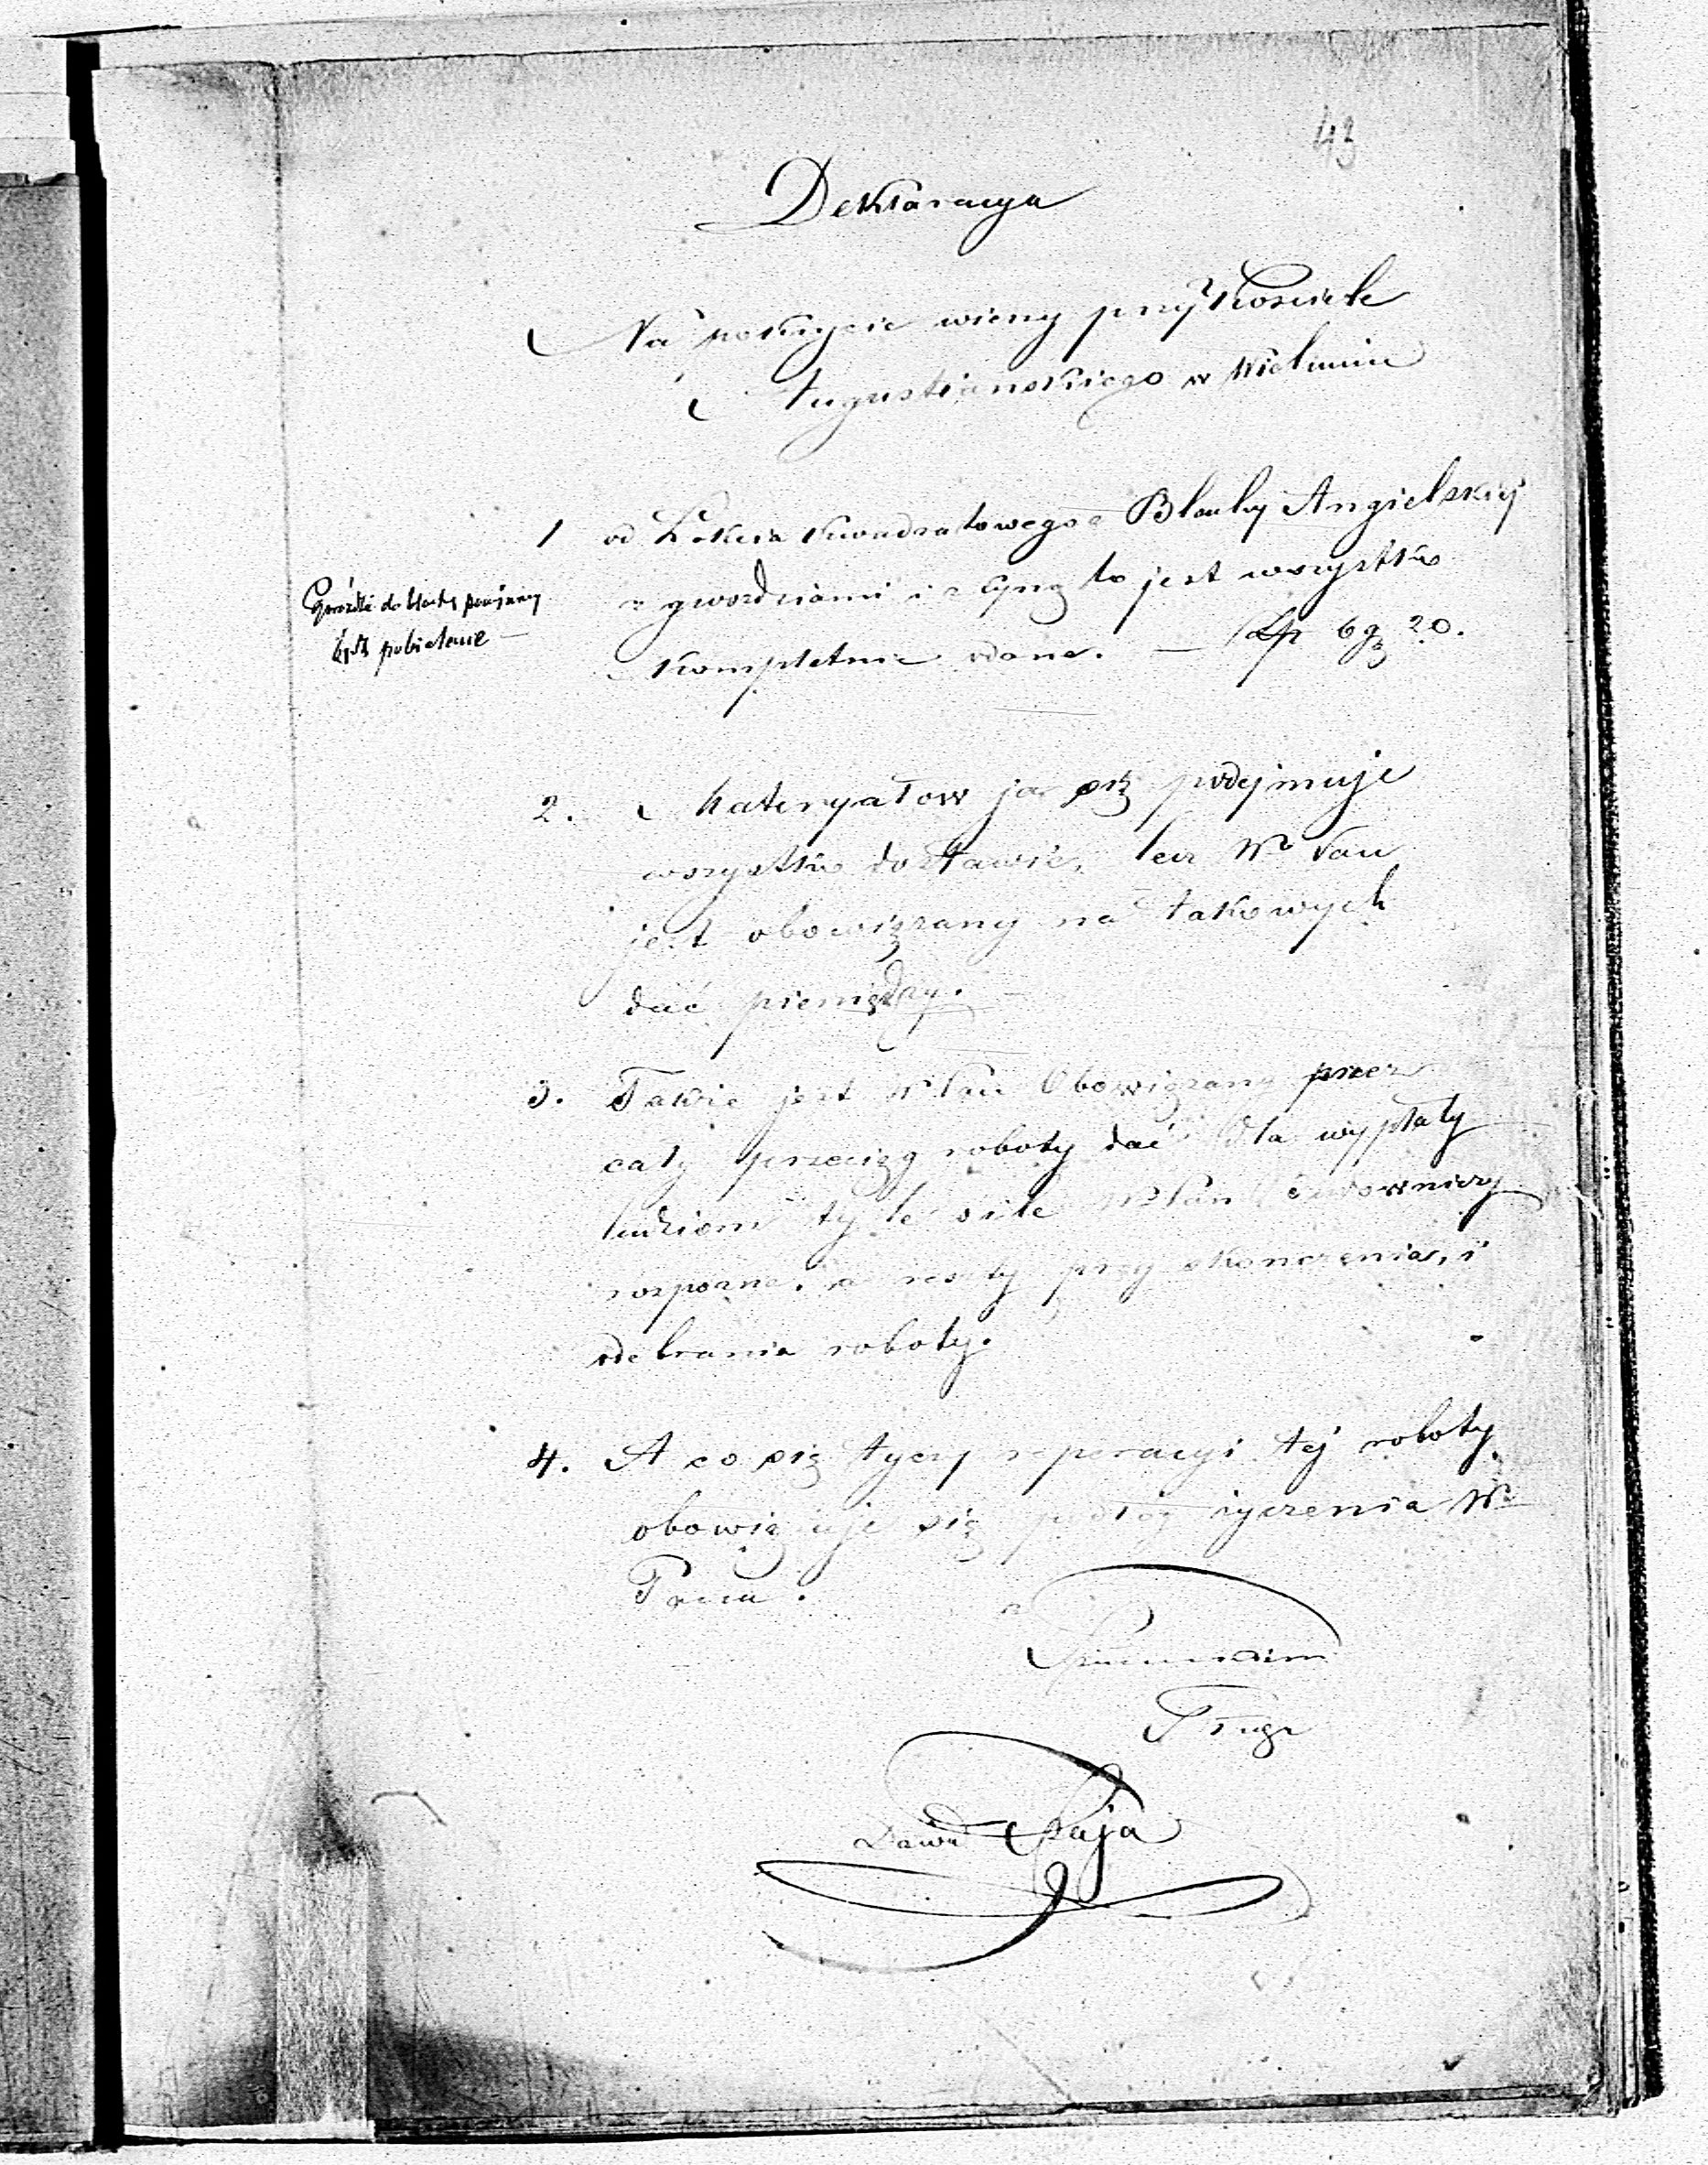 43
Deklaracya
Na pokrycie wierzy przy Kosciele
Augustianskiego w Wieluniu
1 od Łokcia kwadratowego Blachy Angielskiej
z gwozdziami i z cyną to jest wszystko
Kompletnie zdane. — Złp 6 g 20.
Gwoździe do blachy powinny
być pobielane —
2. Materyałow ja się podejmuje
wszystko dostawić, lecz Wº Pan
jest obowiązany na takowych
dać pieniędzy.
3. Także jest Wº Pan Obowiązany przez
cały przeciąg roboty dać dla wypłaty
ludziom tyle o ile Wº Pan Budowniczy
rozpozna, a reszty przy skonczenia, i
odebrania roboty.
4. A co się tyczy reperacyi tej roboty
obowiązuje się podłóg życzenia Wº
Pana.
z
Szacunkiem
Sługa
Dawid Saja